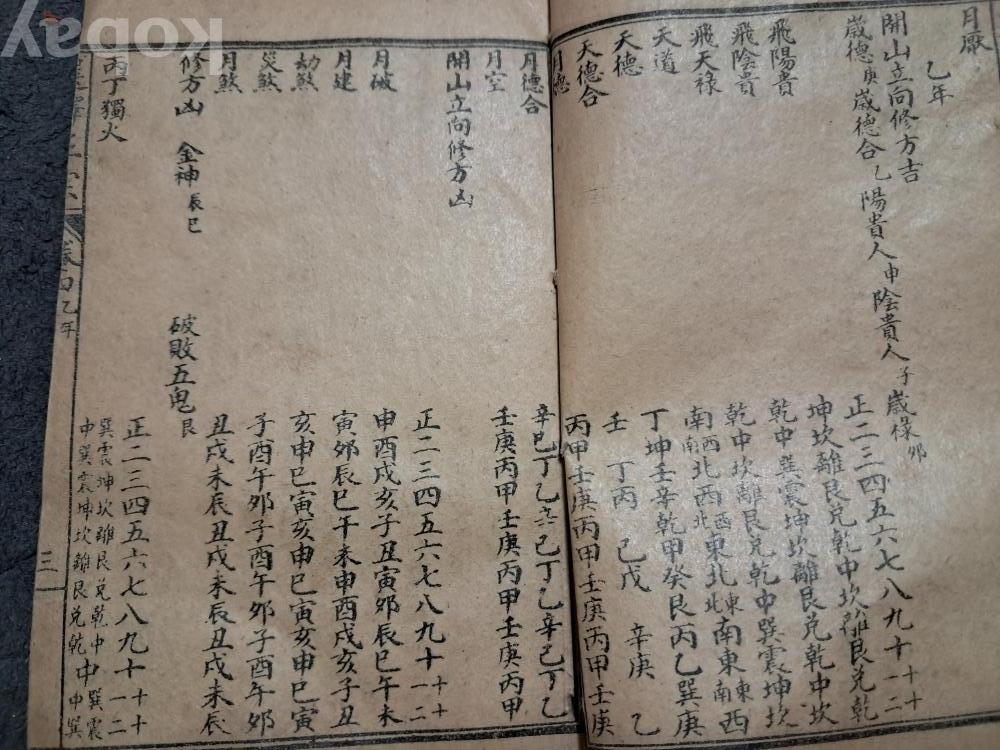 月厭
乙年
開山立向修方吉
歲德庚歲德合乙陽貴人申陰貴人子歲祿夘
正二三四五六七八九十十一十二
飛陽貴 坤坎離艮兌乾中坎離艮兌乾
飛陰貴 乾中巽震坤坎離艮兌乾中坎
飛天祿 乾中坎離艮兌乾中巽震坤坎
天道 南西南北西西北東北東北南東東南西
天德 丁坤壬辛乾甲癸艮丙乙巽庚
天德合 壬 丁丙 己戊 辛庚 乙
月德 丙甲壬庚丙甲壬庚丙甲壬庚
月德合 辛己丁乙辛己丁乙辛己丁乙
月空 壬庚丙甲壬庚丙甲壬庚丙甲
開山立向修方凶
正二三四五六七八九十十一十二
月破 申酉戌亥子丑寅夘辰巳午未
月建 寅夘辰巳午未申酉戌亥子丑
劫煞 亥申巳寅亥申巳寅亥申巳寅
災煞 子酉午夘子酉午夘子酉午夘
月煞 丑戌未辰丑戌未辰丑戌未辰
修方凶 金神辰巳 破敗五鬼艮
正二三四五六七八九十十一十二
丙丁獨火 巽震坤坎離艮兌乾中巽震
中巽震坤坎離艮兌乾中中巽
卷四乙年
三
Kobay